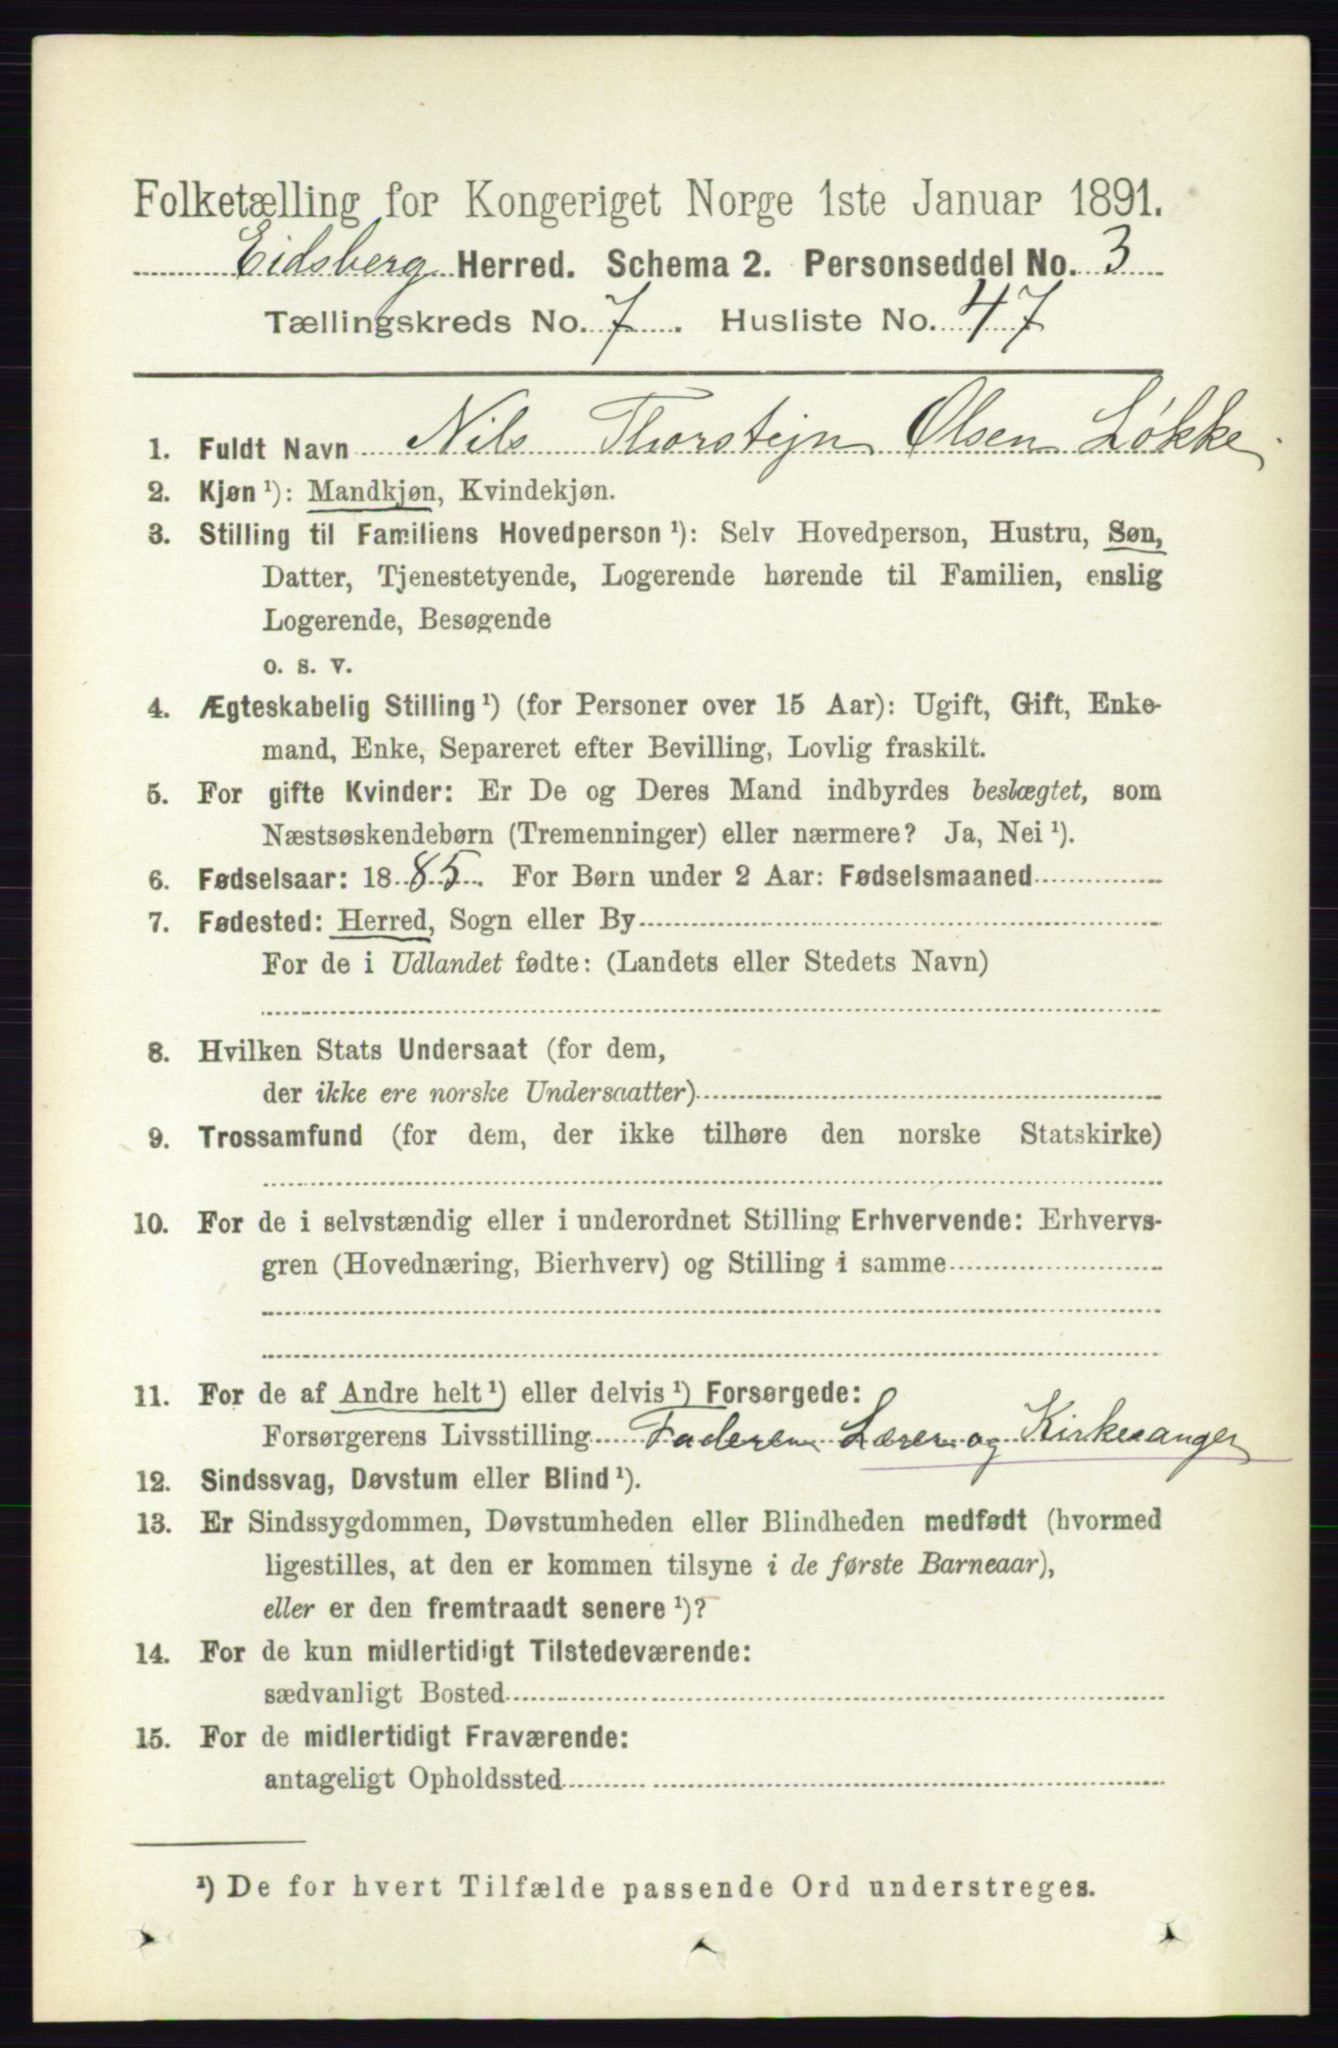 Folketælling for Kongeriget Norge 1ste Januar 1891.
Eidsberg Herred. Schema 2. Personseddel No. 3
Tællingskreds No. 7. Husliste No. 47
1. Fuldt Navn Nils Thorstejn Olsen Løkke
2. Kjøn ¹): Mandkjøn, Kvindekjøn.
3. Stilling til Familiens Hovedperson ¹): Selv Hovedperson, Hustru, Søn,
Datter, Tjenestetyende, Logerende hørende til Familien, enslig
Logerende, Besøgende
o. s. v.
4. Ægteskabelig Stilling ¹) (for Personer over 15 Aar): Ugift, Gift, Enke-
mand, Enke, Separeret efter Bevilling, Lovlig fraskilt.
5. For gifte Kvinder: Er De og Deres Mand indbyrdes beslægtet, som
Næstsøskendebørn (Tremenninger) eller nærmere? Ja, Nei ¹).
6. Fødselsaar: 1885. For Børn under 2 Aar: Fødselsmaaned
7. Fødested: Herred, Sogn eller By
For de i Udlandet fødte: (Landets eller Stedets Navn)
8. Hvilken Stats Undersaat (for dem,
der ikke ere norske Undersaatter)
9. Trossamfund (for dem, der ikke tilhøre den norske Statskirke)
10. For de i selvstændig eller i underordnet Stilling Erhvervende: Erhvervs-
gren (Hovednæring, Bierhverv) og Stilling i samme
11. For de af Andre helt ¹) eller delvis ¹) Forsørgede:
Forsørgerens Livsstilling Faderen Lærer og Kirkesanger
12. Sindssvag, Døvstum eller Blind ¹).
13. Er Sindssygdommen, Døvstumheden eller Blindheden medfødt (hvormed
ligestilles, at den er kommen tilsyne i de første Barneaar),
eller er den fremtraadt senere ¹)?
14. For de kun midlertidigt Tilstedeværende:
sædvanligt Bosted
15. For de midlertidigt Fraværende:
antageligt Opholdssted
¹) De for hvert Tilfælde passende Ord understreges.